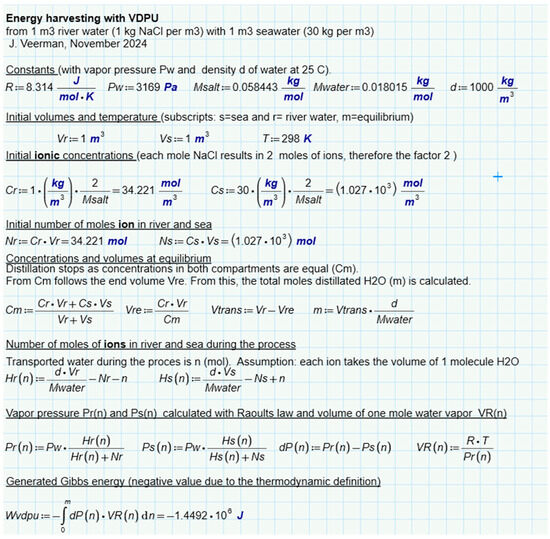 Energy harvesting with VDPU
from 1 m3 river water (1 kg NaCl per m3) with 1 m3 seawater (30 kg per m3)
J. Veerman, November 2024
Constants (with vapor pressure Pw and density d of water at 25 C).
R:=8.314 J/(mol·K) Pw:=3169 Pa Msalt:=0.058443 kg/mol Mwater:=0.018015 kg/mol d:=1000 kg/m³
Initial volumes and temperature (subscripts: s=sea and r= river water, m=equilibrium)
Vr:=1 m³ Vs:=1 m³ T:=298 K
Initial ionic concentrations (each mole NaCl results in 2 moles of ions, therefore the factor 2 )
Cr:=1·(kg/m³)·2/Msalt=34.221 mol/m³ Cs:=30·(kg/m³)·2/Msalt=(1.027·10³) mol/m³
Initial number of moles ion in river and sea
Nr:=Cr·Vr=34.221 mol Ns:=Cs·Vs=(1.027·10³) mol
Concentrations and volumes at equilibrium
Distillation stops as concentrations in both compartments are equal (Cm).
From Cm follows the end volume Vre. From this, the total moles distillated H2O (m) is calculated.
Cm:=(Cr·Vr+Cs·Vs)/(Vr+Vs) Vre:=(Cr·Vr)/Cm Vtrans:=Vr−Vre m:=Vtrans·d/Mwater
Number of moles of ions in river and sea during the process
Transported water during the proces is n (mol). Assumption: each ion takes the volume of 1 molecule H2O
Hr(n):=(d·Vr)/Mwater−Nr−n Hs(n):=(d·Vs)/Mwater−Ns+n
Vapor pressure Pr(n) and Ps(n) calculated with Raoults law and volume of one mole water vapor VR(n)
Pr(n):=Pw·Hr(n)/(Hr(n)+Nr) Ps(n):=Pw·Hs(n)/(Hs(n)+Ns) dP(n):=Pr(n)−Ps(n) VR(n):=(R·T)/Pr(n)
Generated Gibbs energy (negative value due to the thermodynamic definition)
Wvdpu:=−∫₀ᵐ dP(n)·VR(n) dn=−1.4492·10⁶ J